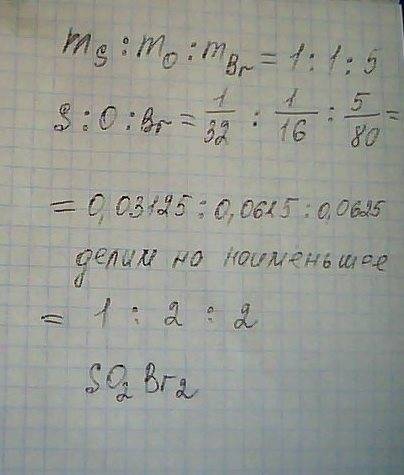 m_S : m_O : m_Br = 1 : 1 : 5
S : O : Br = 1/32 : 1/16 : 5/80 =
= 0,03125 : 0,0625 : 0,0625
делим на наименьшее
= 1 : 2 : 2
SO₂Br₂